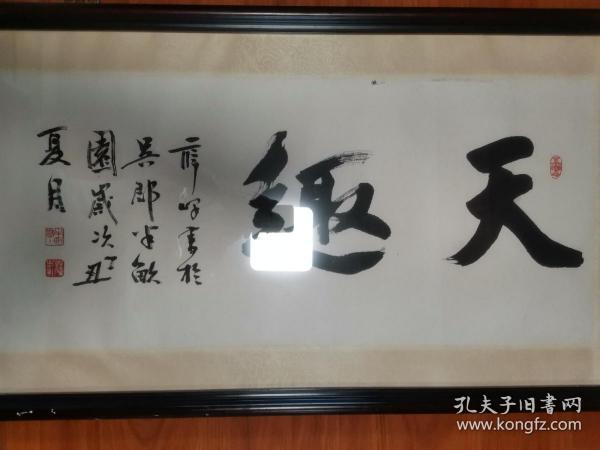 天趣
书于
吴郡半亩
园岁次丁丑
夏月
孔夫子旧书网
www.kongfz.com